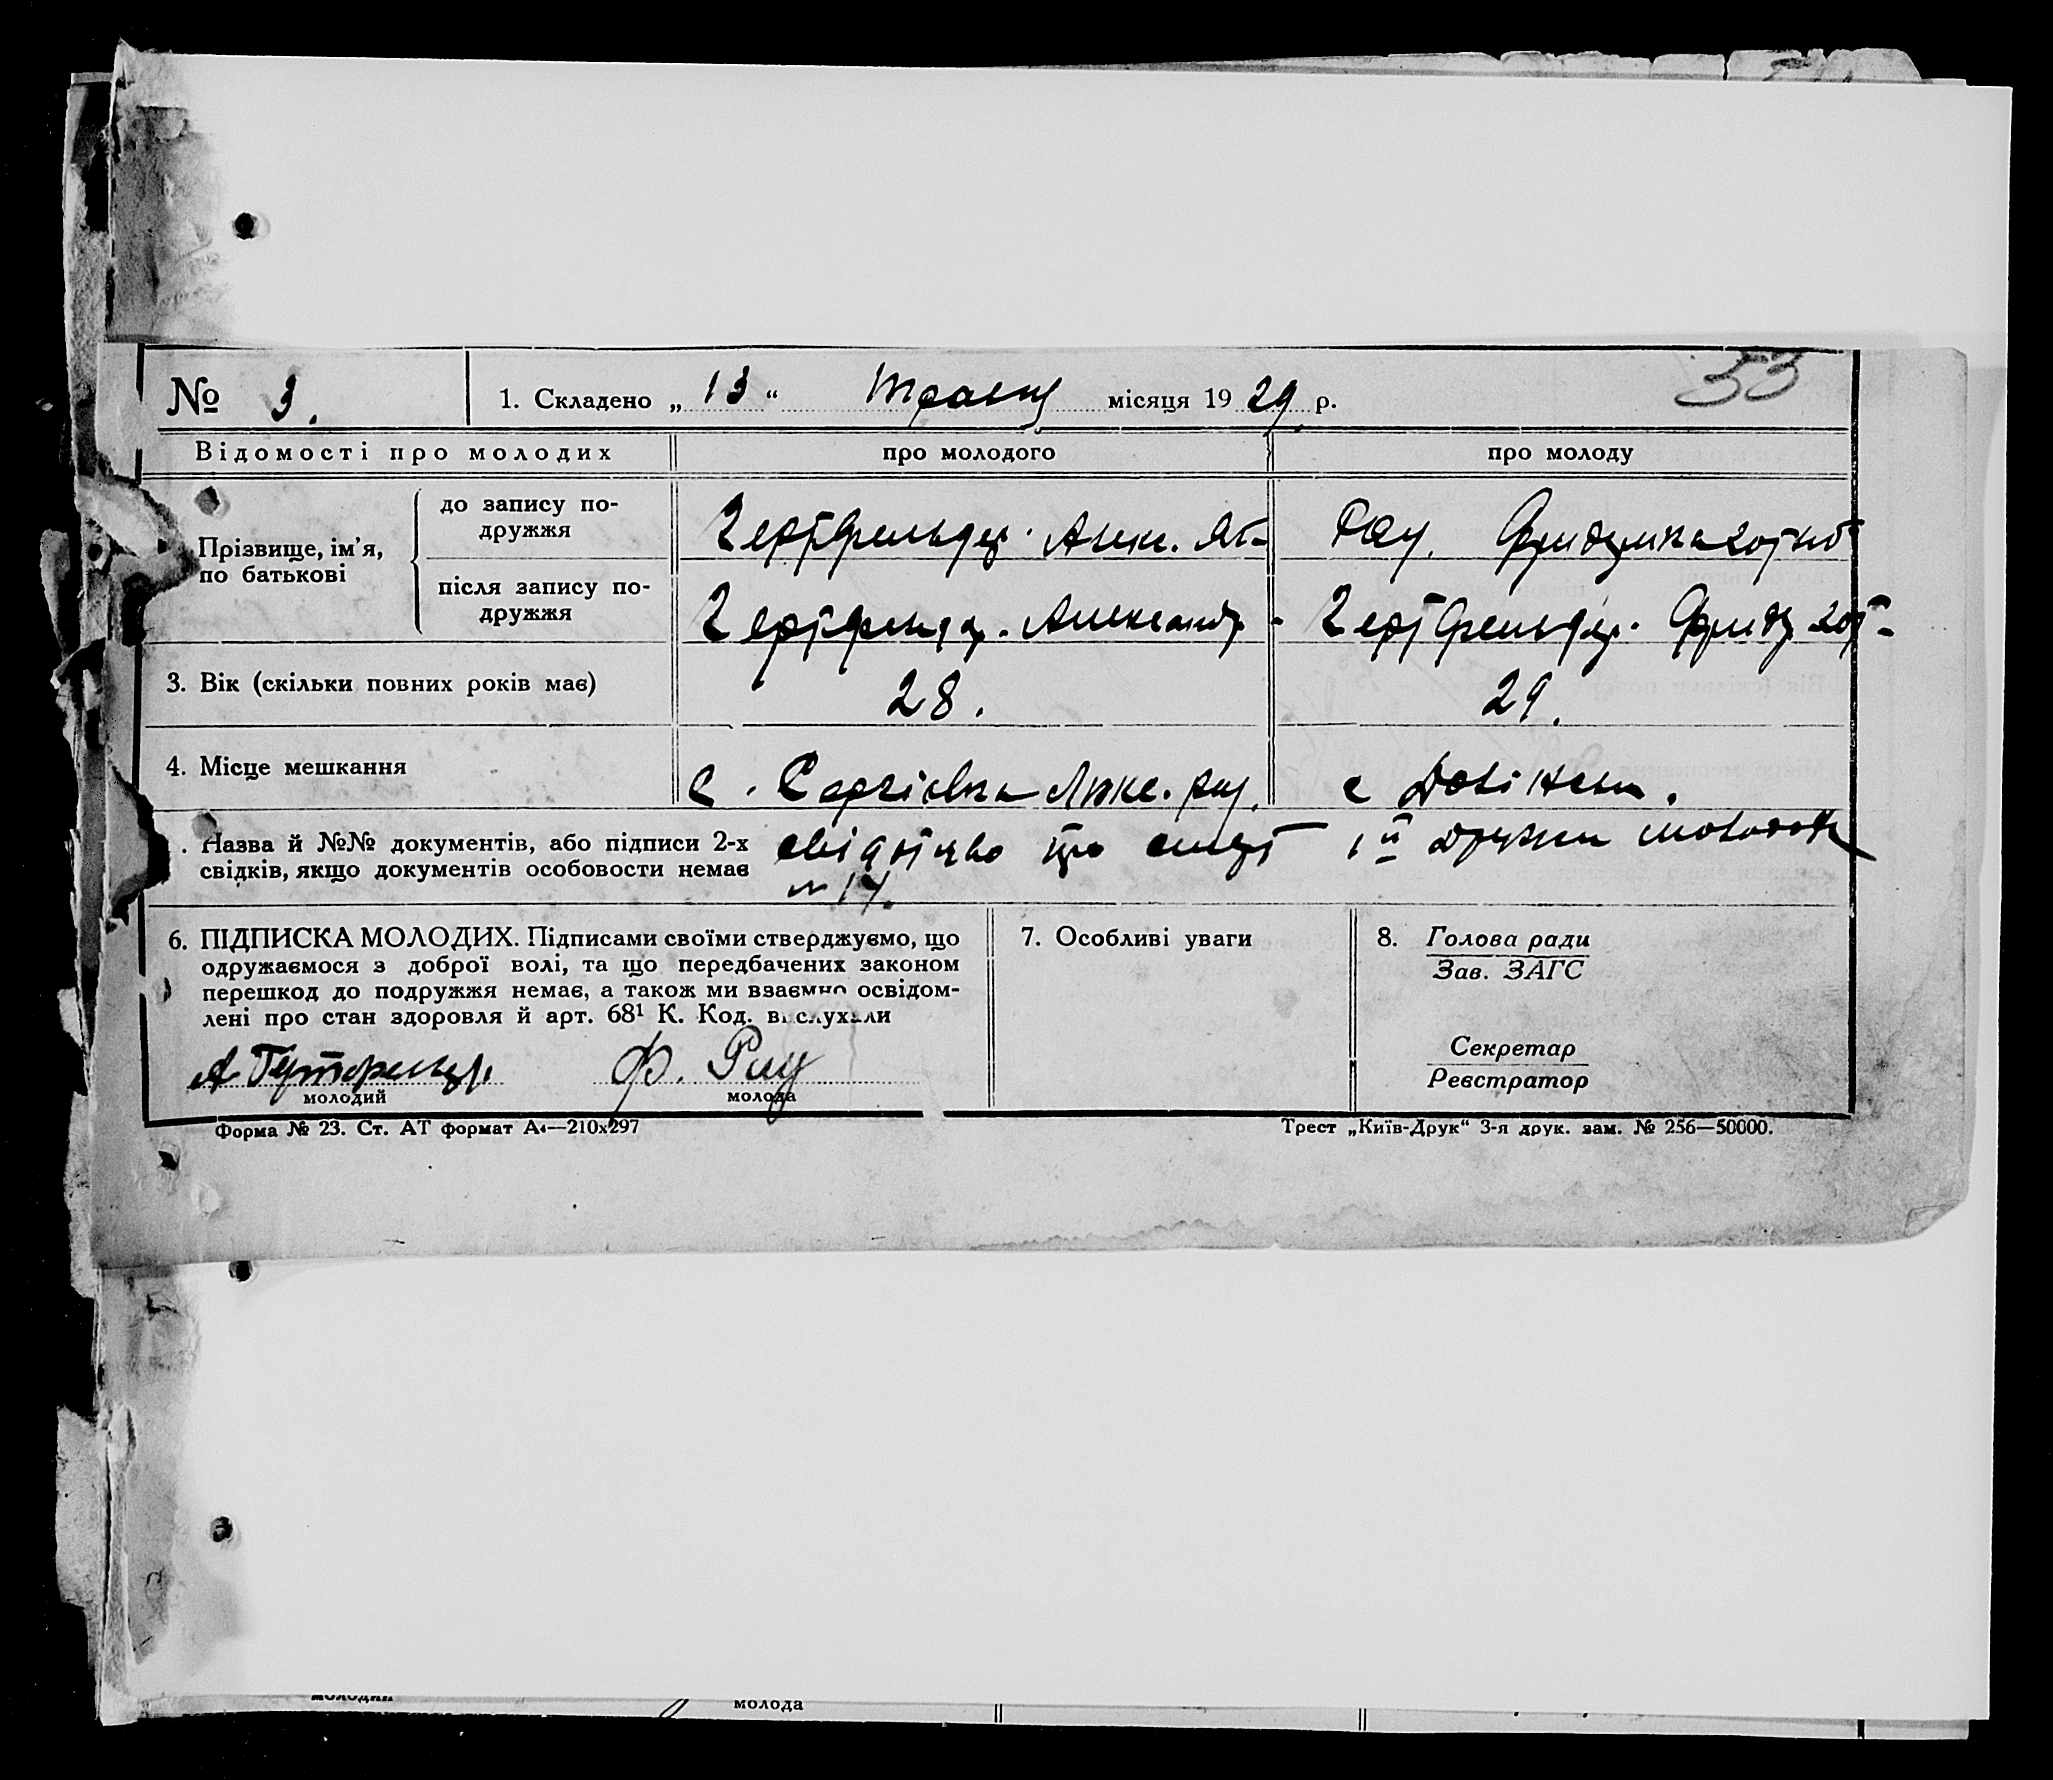 № 3. 1. Складено „ 13 “ Травня місяця 19 29 р. 53
Відомості про молодих про молодого про молоду
Прізвище, ім’я, по батькові
до запису по-
дружжя
Алекс.
після запису по-
дружжя
Александр
3. Вік (скільки повних років має) 28. 29.
4. Місце мешкання с. Сергієвка с
. Назва й №№ документів, або підписи 2-х
свідків, якщо документів особовости немає
свідоцтво про смерт 1й дружини молодого
№ 17.
6. ПІДПИСКА МОЛОДИХ. Підписами своїми стверджуємо, що
одружаємося з доброї волі, та що передбачених законом
перешкод до подружжя немає, а також ми взаємно освідом-
лені про стан здоровля й арт. 68¹ К. Код. вислухали
А. Ф. Рау
молодий молода
7. Особливі уваги
8. Голова ради
Зав. ЗАГС
Секретар
Реєстратор
Форма № 23. Ст. АТ формат А4—210х297 Трест „Київ-Друк“ 3-я друк. зам. № 256—50000.
молодий молода